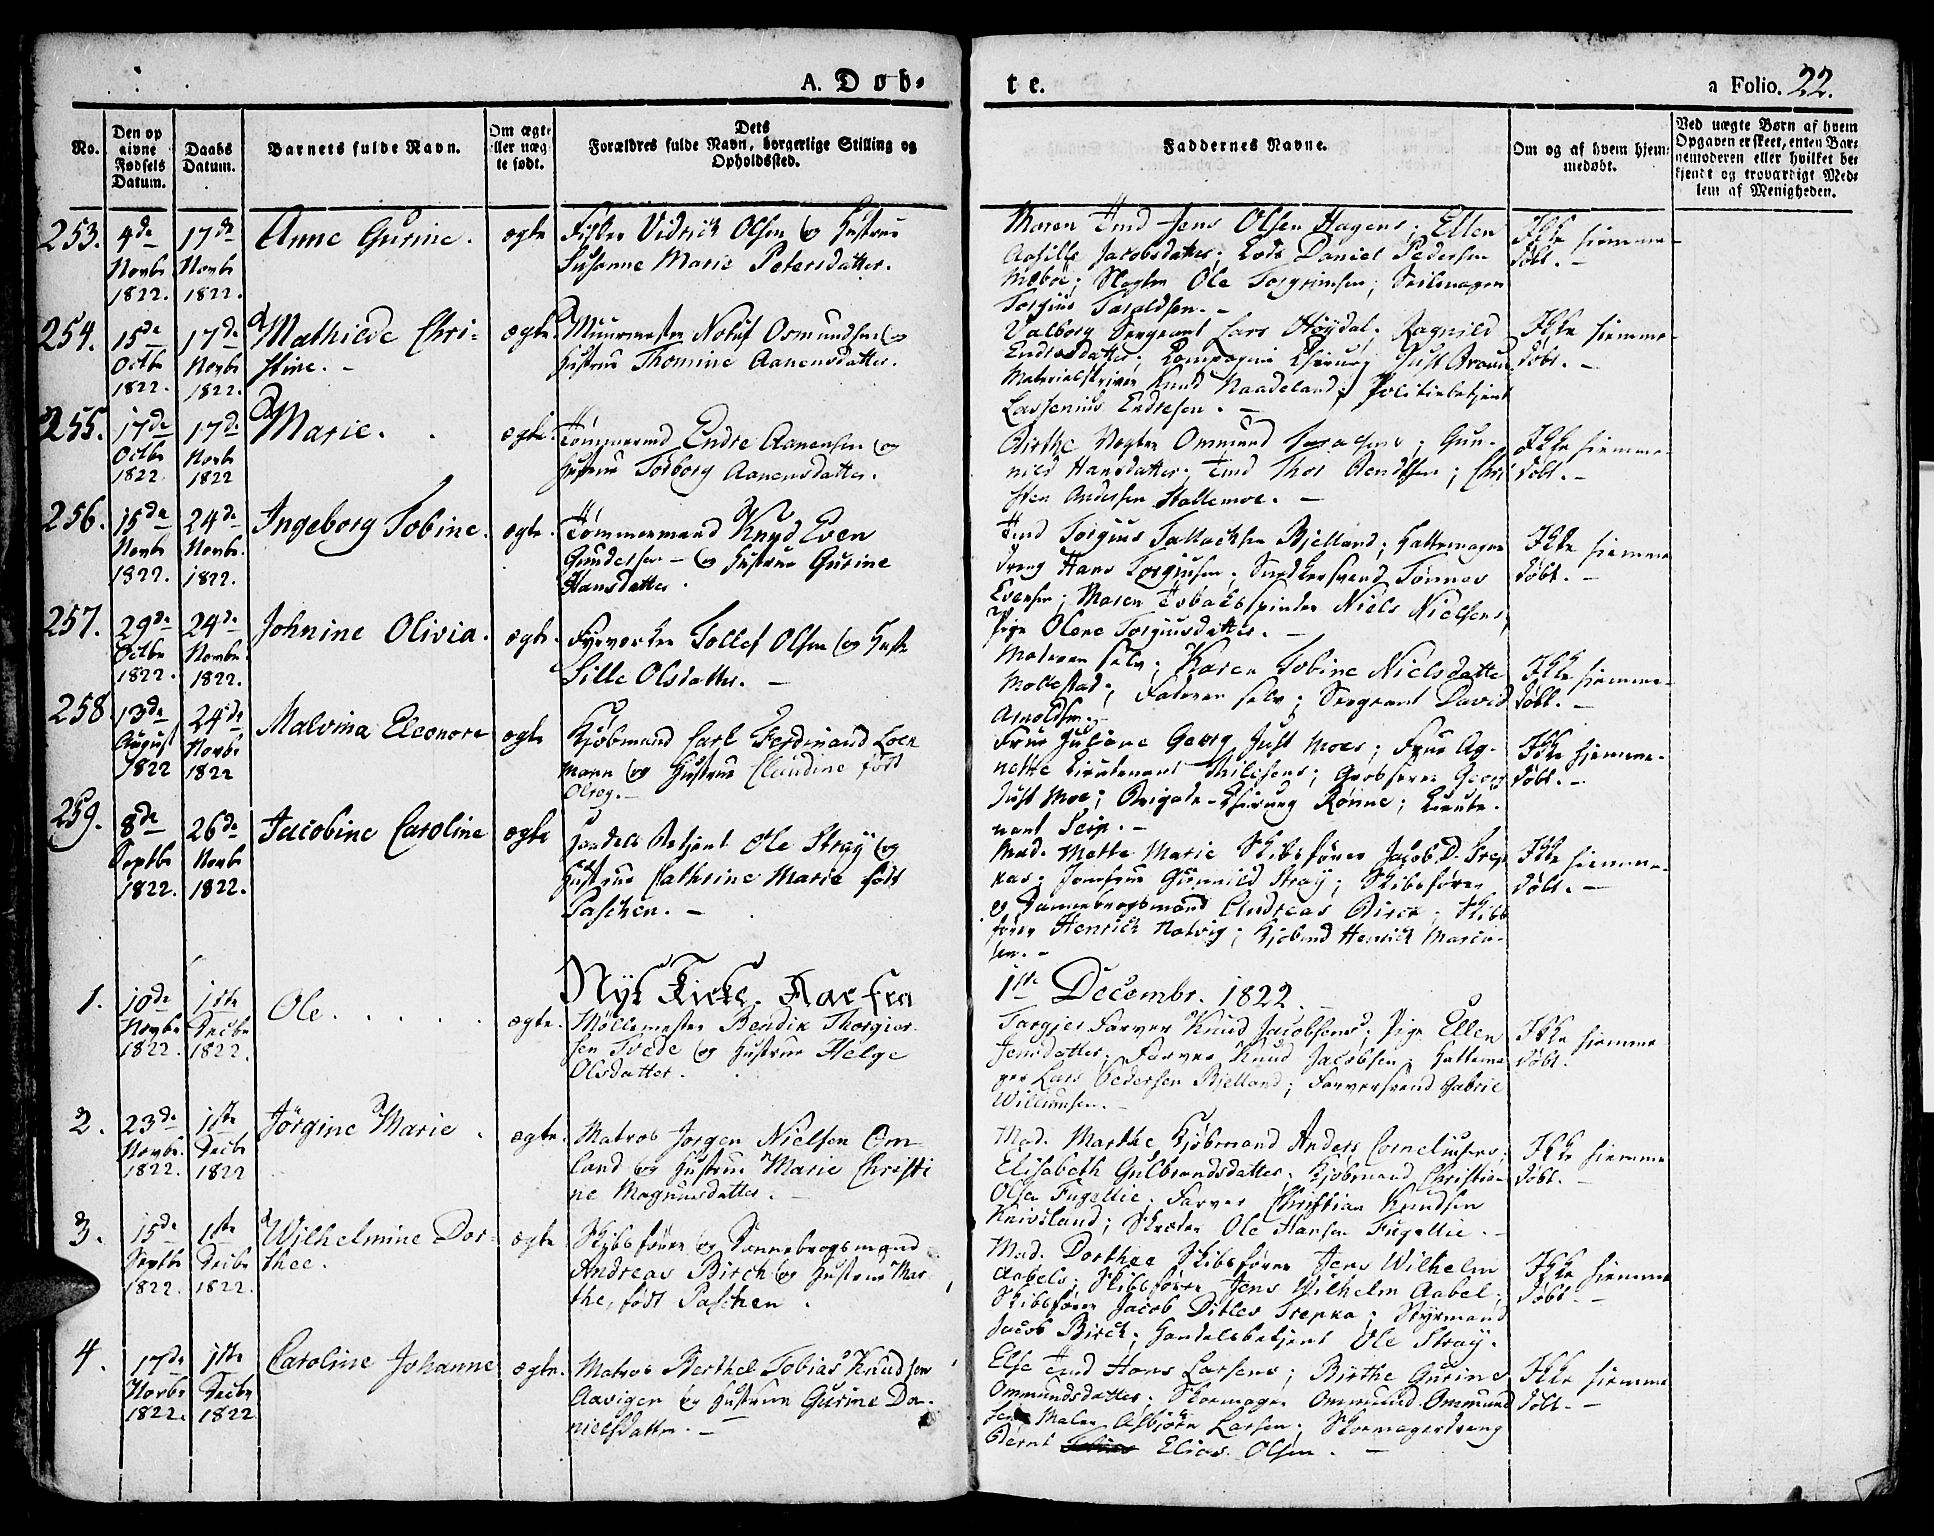 A. Døb-
te.
a Folio. 22.
No.
Den op
givne
Fødsels
Datum.
Daabs
Datum.
Barnets fulde Navn.
Om ægte
eller uæg
te født.
Dets
Forældres fulde Navn, borgerlige Stilling og
Opholdssted.
Faddernes Navne.
Om og af hvem hjem-
medøbt.
Ved uægte Børn af hvem
Opgaven er skeet, enten Bar-
nemoderen eller hvilket be-
kjendt og troværdigt Med-
lem af Menigheden.
253.
4de
Novbr
1822.
17de
Novbr
1822.
Anne Gurine.
ægte
Fisker Vidrick Olsen og Hustrue
Susanne Marie Petersdatter.
Maren Tmd Jens Olsen Hagens; Ellen
Jacobsdatter; Lods Daniel Pedersen
Ole Torgrimsen; Seilmager
Torgius Taraldsen.
Ikke hiemme-
døbt.
254.
15de
Octbr
1822.
17de
Novbr
1822.
Mathilde Chri-
stine.
ægte.
Muurmester Notuf Osmundsen og
Hustrue Thomine Aanensdatter.
Valborg Sergeant Lars Høydal; Ragnild
Endresdatter; Compagnie Chirurg Just Braun
Materialskriver Knud Naadeland; Politiebetjent
Lassenius Endresen.
Ikke hiemme-
døbt.
255.
17de
Octbr
1822.
17de
Novbr
1822
Marie.
ægte.
Tømmermd Endre Aanensen og
Hustrue Torborg Aanensdatter.
Birthe Vegter Ommund; Gun-
nild Hansdatter; Tmd Thor Bendtsen; Chri
sten Andersen Stallemoe.
Ikke hiemme-
døbt.
256.
15de
Novbr
1822.
24de
Novbr.
1822.
Ingeborg Tobine.
ægte.
Tømmermand Knud Even
Gundersen og Hustrue Gurine
Hansdatter.
Tmd Torgius Tallachsen Bjelland; Hattemager
dreng Hans Torgiusen; Snedkersvend Tønnes
Evensen; Maren Tobakspinder Niels Nielsens;
Pige Olene Torgiusdatter.
Ikke hiemme
døbt.
257.
29de
Octbr
1822.
24de
Novbr.
1822.
Johnine Olivia.
ægte.
Fyrverker Tollef Olsen og Hustr
Sille Olsdatter.
Moderen selv; Karen Tobine Nielsdatte
Mollestad; Faderen selv; Sergeant David
Arnoldsen.
Ikke hiemme-
døbt.
258
13de
August
1822
24de
Novbr
1822
Malvina Eleonore
ægte
Kjøbmand Carl Ferdinand Loen
mann og Hustrue Claudine født
Olrog.
Frue Juliane Georg Just Moes; Frue Ag-
nette Lieutenant; Georg
Just Moe; Brigade-Chirurg Rønne; Lieute-
nant Seip.
Ikke hjemme-
døbt.
259.
8de
Septbr
1822.
26de
Novbr
1822.
Jacobine Caroline
ægte
Handels Betjent Ole Stray og
Hustrue Cathrine Marie født
Paschen.
Mad. Mette Marie Skibsfører Jacob D. Trep
kas; Jomfrue Gunnild Stray; Skibsfører
og Dannebrogsmand Andreas Birch; Skibs
fører Henrick Natvig; Kjøbmd Henrick Marcu-
sen.
Ikke hiemme-
døbt.
Nyt Kirke Aar fra
1ste Decembr. 1822.
1.
10de
Novbr
1822.
1ste
Decbr
1822.
Ole
ægte.
Møllemester Bendix Thorgier-
sen Tvede og Hustrue Helge
Olsdatter.
Torgjer Farver Knud Jacobsens; Pige Ellen
Jensdatter; Farver Knud Jacobsen; Hattema
ger Lars Pedersen Bjelland; Farversvend Gabriel
Willumsen.
Ikke hiemme
døbt.
2.
23de
Novbr.
1822.
1ste
Decbr
1822
Jörgine Marie
ægte.
Matros Jørgen Nielsen Om-
land og Hustrue Marie Christi
ne Magnusdatter.
Mad. Marthe Kjøbmand Anders Corneliusens;
Elisabeth Gulbrandsdatter; Kjøbmand Christian
Olsen Fugellie; Farver Christian Knudsen
Knivsland; Skræder Ole Hansen Fugellie.
Ikke hiemme
døbt.
3.
15de
Septbr
1822.
1ste
Decbr
1822.
Wilhelmine Dor-
thee.
ægte
Skibsfører og Dannebrogsmand
Andreas Birch og Hustrue Mar-
the, født Paschen.
Mad. Dorthee Skibsfører Jens Wilhelm
Aabels; Skibsfører Jens Wilhelm Aabel;
Skibsfører Jacob Ditlev Trepka; Styrmand
Jacob Birch; Handelsbetjent Ole Stray.
Ikke hiemme
døbt.
4.
17de
Novbr
1822.
1ste
Decbr
1822
Caroline Johanne
ægte.
Matros Berthel Tobias Knudsen
Aavigen og Hustrue Gurine Da-
nielsdatter.
Else Tmd Hans Larsens; Birthe Gurine
Ommundsdatter; Skomager Ommund Ommund
sen Maler Asbjørn Larsen; Skomagerdreng
Bernt Elias Olsen.
Ikke hiemme
døbt.